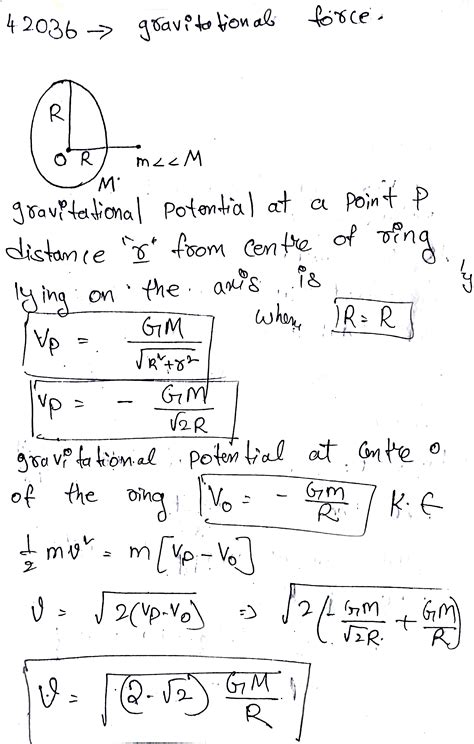 42036 → gravitational force.
R
O R m<<M
M.
gravitational potential at a point P
distance "r" from centre of ring
lying on the axis is
where R = R
Vp = GM/√R²+r²
Vp = - GM/√2R
gravitational potential at centre o
of the ring V₀ = - Gm/R K.E
1/2 mv² = m[Vp - V₀]
v = √2(Vp-V₀) ⇒ √2(-Gm/√2R + GM/R)
v = √(2-√2) GM/R